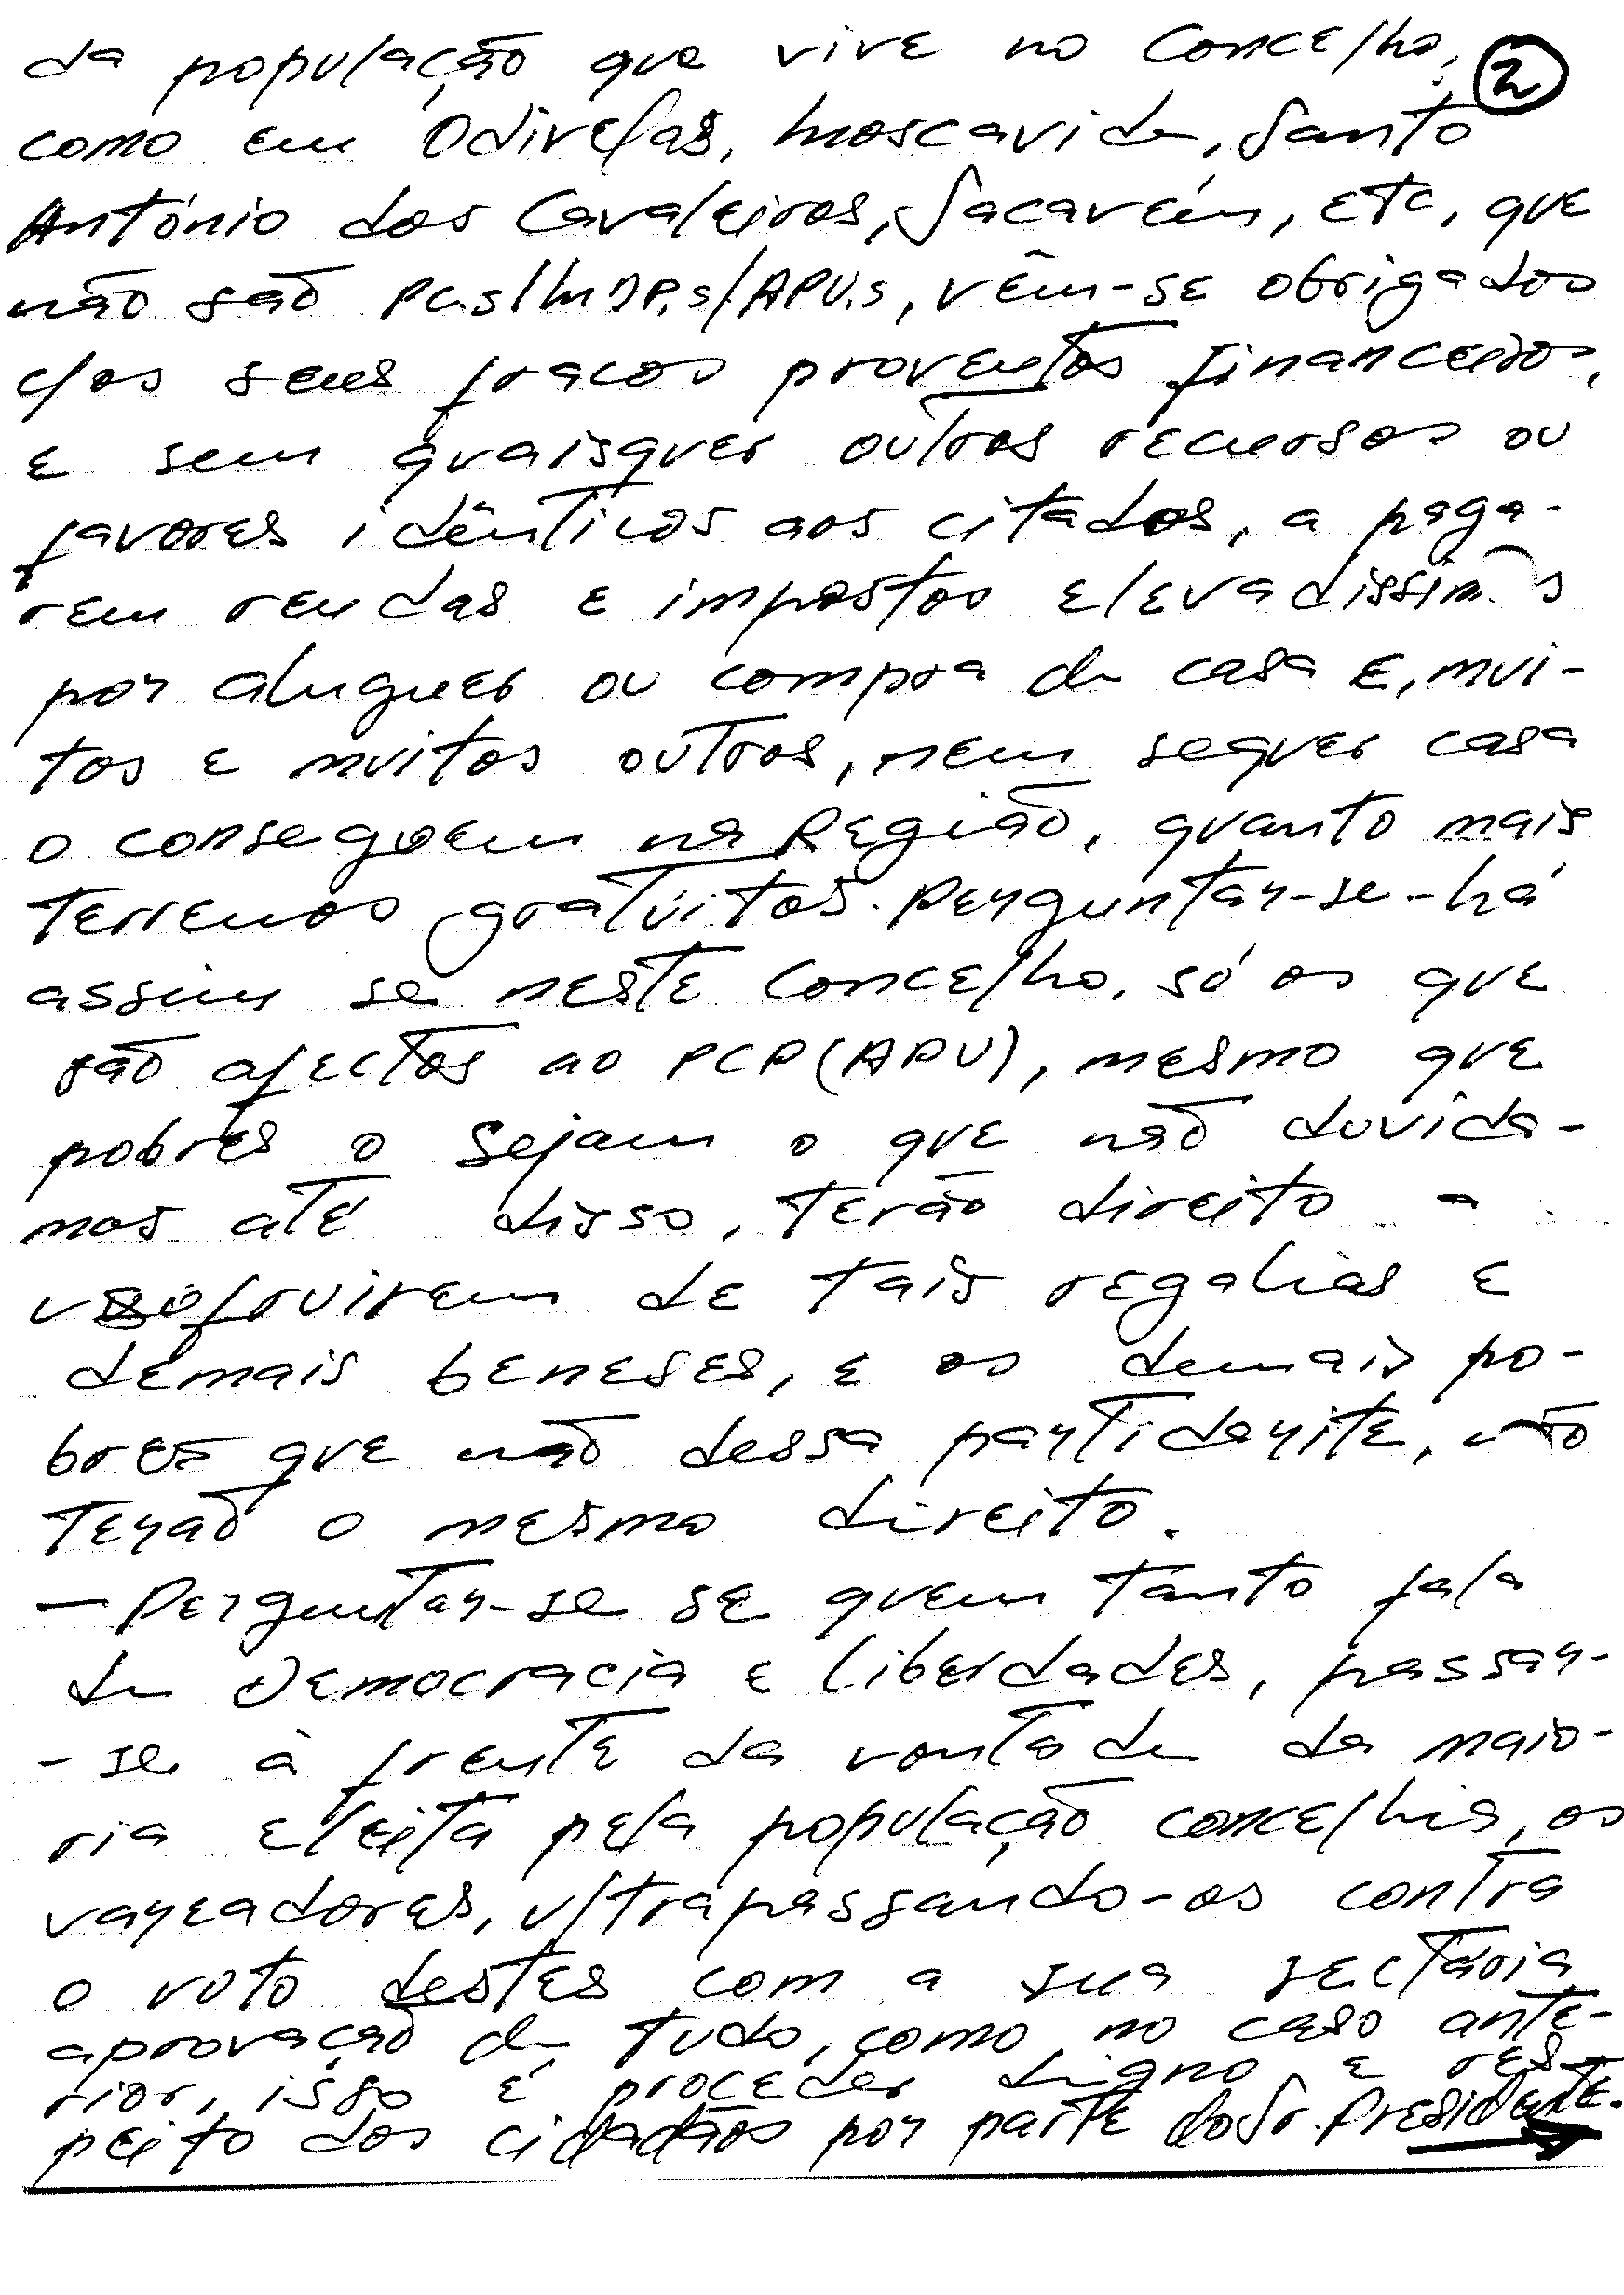 da população que vive no Concelho, 2
como em Odivelas, Moscavide, Santo
António dos Cavaleiros, Sacavém, etc, que
não são PC.s/MDP.s/APU.s, vêm-se obrigados
c/os seus fracos proventos financeiros,
e sem quaisquer outros recursos ou
favores idênticos aos citados, a paga-
rem rendas e impostos elevadissimos
por aluguer ou compra de casa e, mui-
tos e muitos outros, nem sequer casa
o conseguem na Região, quanto mais
terrenos gratuitos. Perguntar-se-há
assim se neste Concelho, só os que
são afectos ao PCP (APU), mesmo que
pobres o sejam o que não duvida-
mos até disso, terão direito a
usofruirem de tais regalias e
demais beneses, e os demais po-
bres que não dessa partidarite, não
terão o mesmo direito.
— Perguntar-se se quem tanto fala
de Democracia e liberdades, passar-
-se à frente da vontade da maio-
ria eleita pela população concelhia, os
vareadores, ultrapassando-os contra
o voto destes com a sua sectária
aprovação de tudo, como no caso ante-
rior, isso é proceder digno e res-
peito dos cidadãos por parte do Sr. Presidente.